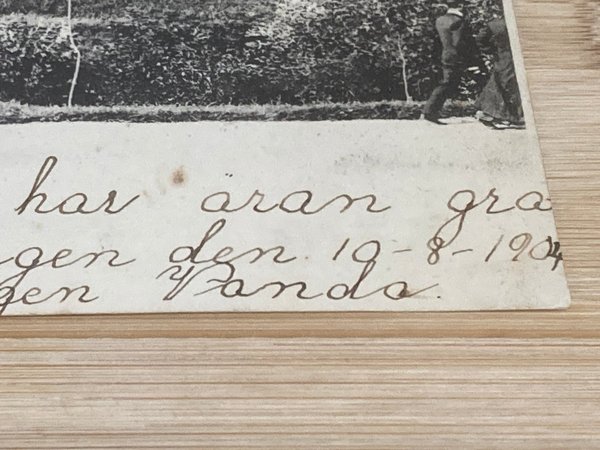 har äran gra
gen den 10-8-1904
gen Vanda.